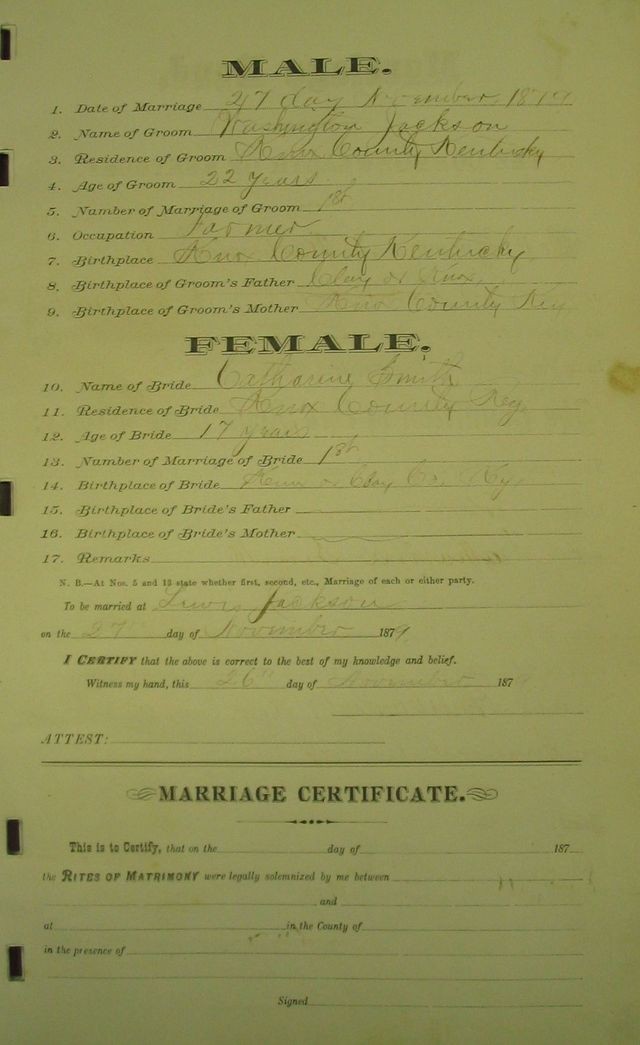 MALE.
1. Date of Marriage 27 day November, 1879
2. Name of Groom Washington Jackson
3. Residence of Groom Knox County Kentucky
4. Age of Groom 22 years
5. Number of Marriage of Groom 1st
6. Occupation Farmer
7. Birthplace Knox County Kentucky
8. Birthplace of Groom's Father Clay or Knox
9. Birthplace of Groom's Mother Knox County Key
FEMALE.
10. Name of Bride Catharine Smith
11. Residence of Bride Knox County Key
12. Age of Bride 17 years
13. Number of Marriage of Bride 1st
14. Birthplace of Bride or Clay Co Ky
15. Birthplace of Bride's Father
16. Birthplace of Bride's Mother
17. Remarks
N. B.—At Nos. 5 and 13 state whether first, second, etc., Marriage of each or either party.
To be married at Lewis Jackson
on the 27 day of November 1879
I CERTIFY that the above is correct to the best of my knowledge and belief.
Witness my hand, this 26" day of November 187
ATTEST:
MARRIAGE CERTIFICATE.
This is to Certify, that on the day of 187
the RITES OF MATRIMONY were legally solemnized by me between
and
at in the County of
in the presence of
Signed